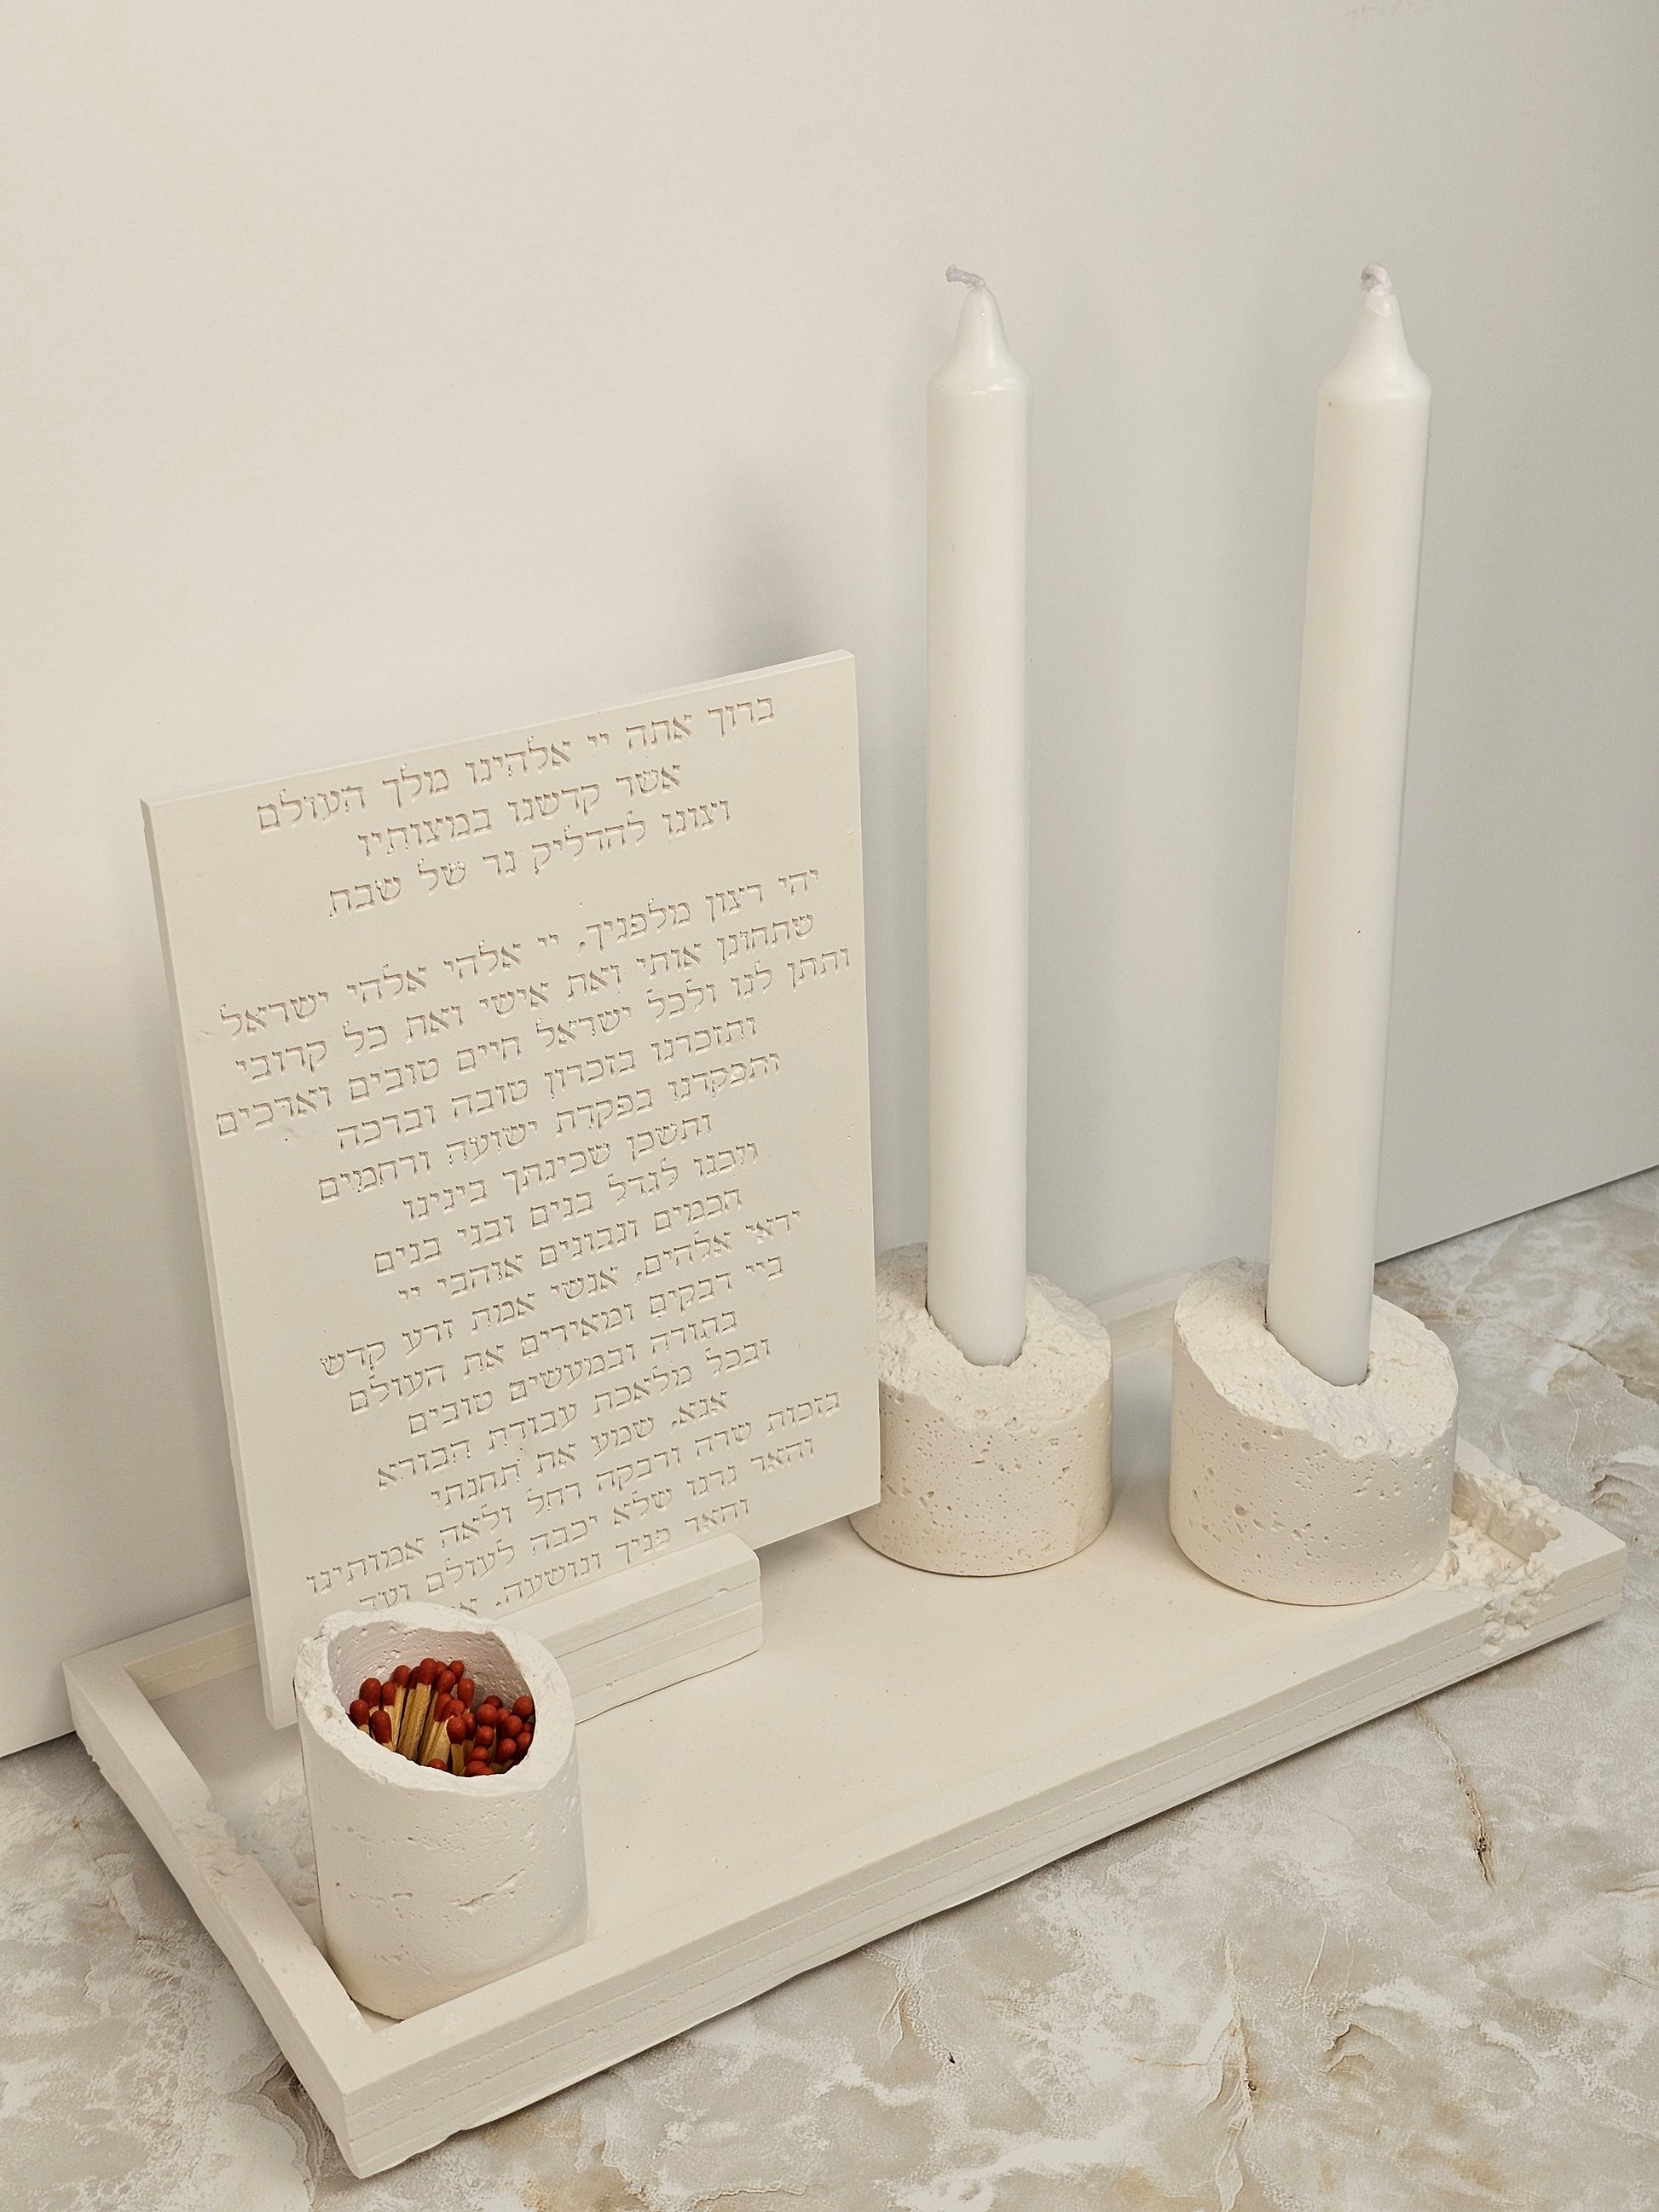 ברוך אתה יי אלהינו מלך העולם
אשר קדשנו במצותיו
וצונו להדליק נר של שבת
יהי רצון מלפניך, יי אלהי אלהי ישראל
שתחונן אותי ואת אישי ואת כל קרובי
ותתן לנו ולכל ישראל חיים טובים וארכים
ותזכרנו בזכרון טובה וברכה
ותפקדנו בפקדת ישועה ורחמים
ותשכן שכינתך בינינו
וזכנו לגדל בנים ובני בנים
חכמים ונבונים אוהבי יי
יראי אלהים, אנשי אמת זרע קדש
ביי דבקים ומאירים את העולם
בתורה ובמעשים טובים
ובכל מלאכת עבודת הבורא
אנא, שמע את תחנתי
בזכות שרה ורבקה רחל ולאה אמותינו
והאר נרנו שלא יכבה לעולם ועד
והאר פניך ונושעה.